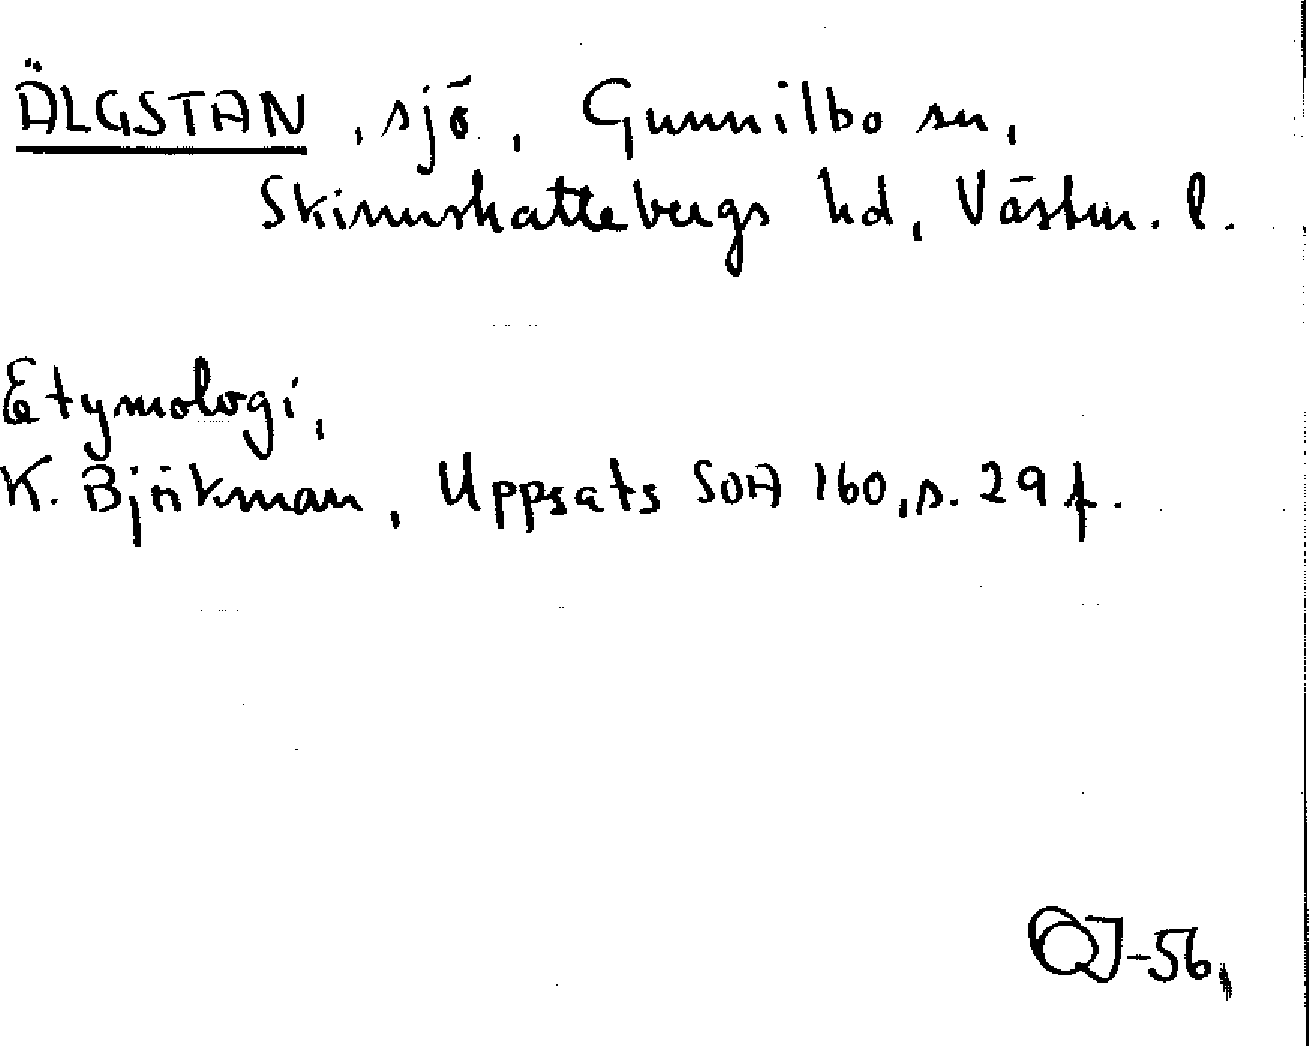 ÄLGSTAN, sjö, Gunnilbo sn,
Skinnskattebergs hd, Västm. l.
Etymologi,
K. Björkman, Uppsats SOA 160, s. 29 f.
OJ-56.